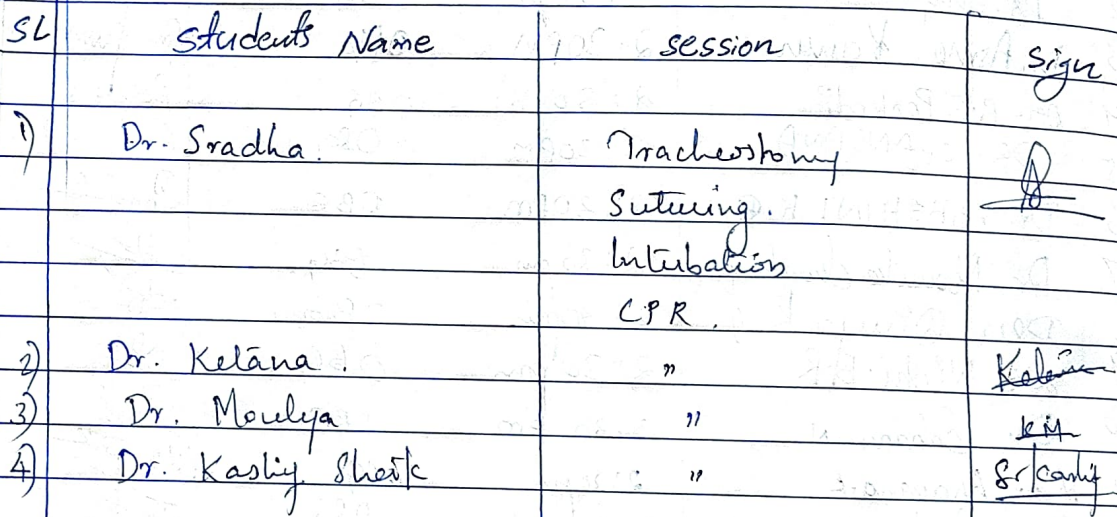 SL Students Name session Sign
1) Dr. Sradha. Tracheostomy
Sutuing.
Intubation
CPR.
2) Dr. Ketana. "
3) Dr. Moulya " KM
4) Dr. Kashiy Sheik "